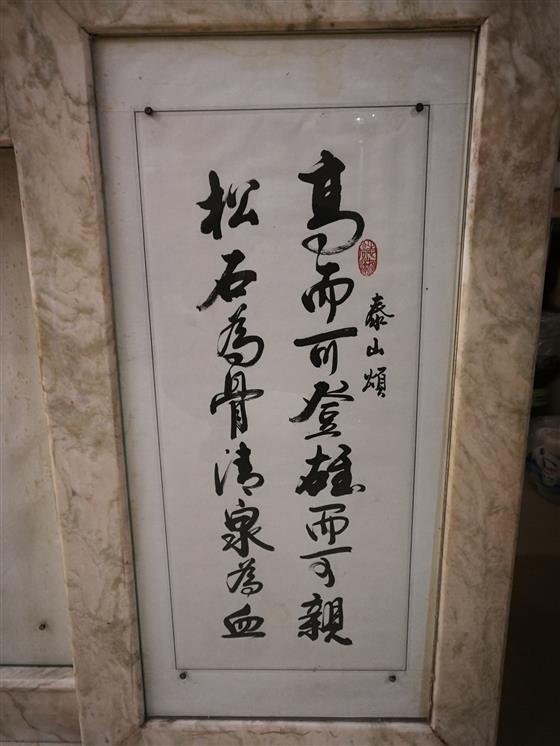 泰山頌
高而可登雄而可親
松石為骨清泉為血